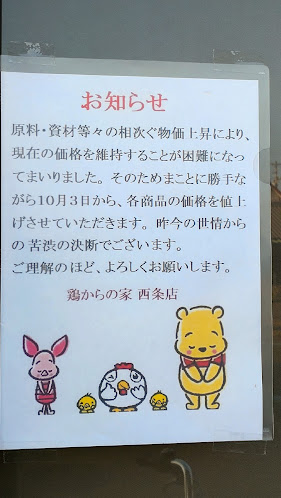 お知らせ
原料・資材等々の相次ぐ物価上昇により、
現在の価格を維持することが困難になっ
てまいりました。そのためまことに勝手な
がら10月3日から、各商品の価格を値上
げさせていただきます。昨今の世情から
の苦渋の決断でございます。
ご理解のほど、よろしくお願いします。
鶏からの家 西条店